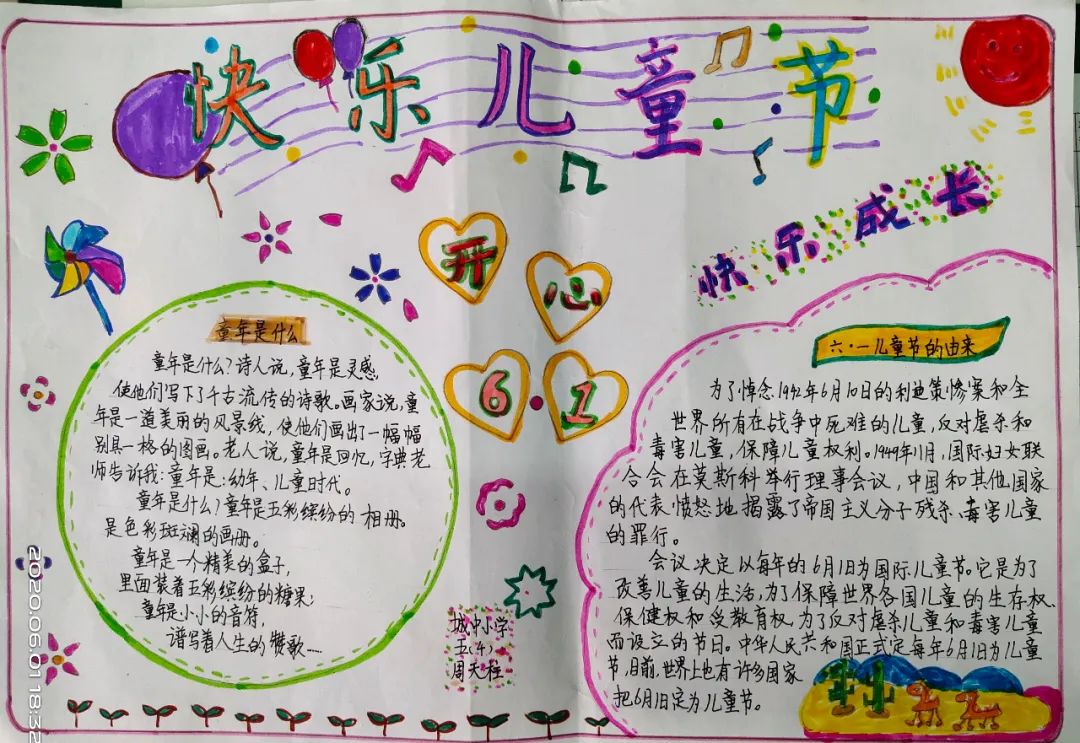 快乐儿童节
快乐成长
开心
6·1
童年是什么
童年是什么?诗人说,童年是灵感,
使他们写下了千古流传的诗歌。画家说,童
年是一道美丽的风景线,使他们画出了一幅幅
别具一格的图画。老人说,童年是回忆,字典老
师告诉我:童年是:幼年、儿童时代。
童年是什么?童年是五彩缤纷的相册。
是色彩斑斓的画册。
童年是一个精美的盒子,
里面装着五彩缤纷的糖果;
童年是小小的音符,
谱写着人生的赞歌……
城中小学
五(4)
周天桂
六·一儿童节的由来
为了悼念1942年6月10日的利迪策惨案和全
世界所有在战争中死难的儿童,反对虐杀和
毒害儿童,保障儿童权利。1949年11月,国际妇女联
合会在莫斯科举行理事会议,中国和其他国家
的代表愤怒地揭露了帝国主义分子残杀、毒害儿童
的罪行。
会议决定以每年的6月1日为国际儿童节。它是为了
改善儿童的生活,为了保障世界各国儿童的生存权、
保健权和受教育权,为了反对虐杀儿童和毒害儿童
而设立的节日。中华人民共和国正式定每年6月1日为儿童
节,目前,世界上也有许多国家
把6月1日定为儿童节。
2020.06.01 18:32